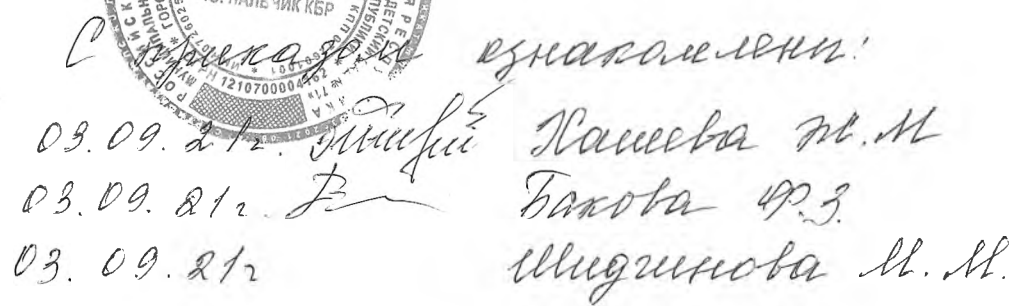 НАЛЬЧИК КБР
1210700004192
С приказом ознакомлены:
03.09.21г. Хашева Ж.М
03.09.21г. Бакова Ф.З.
03.09.21г Шидгинова М.М.